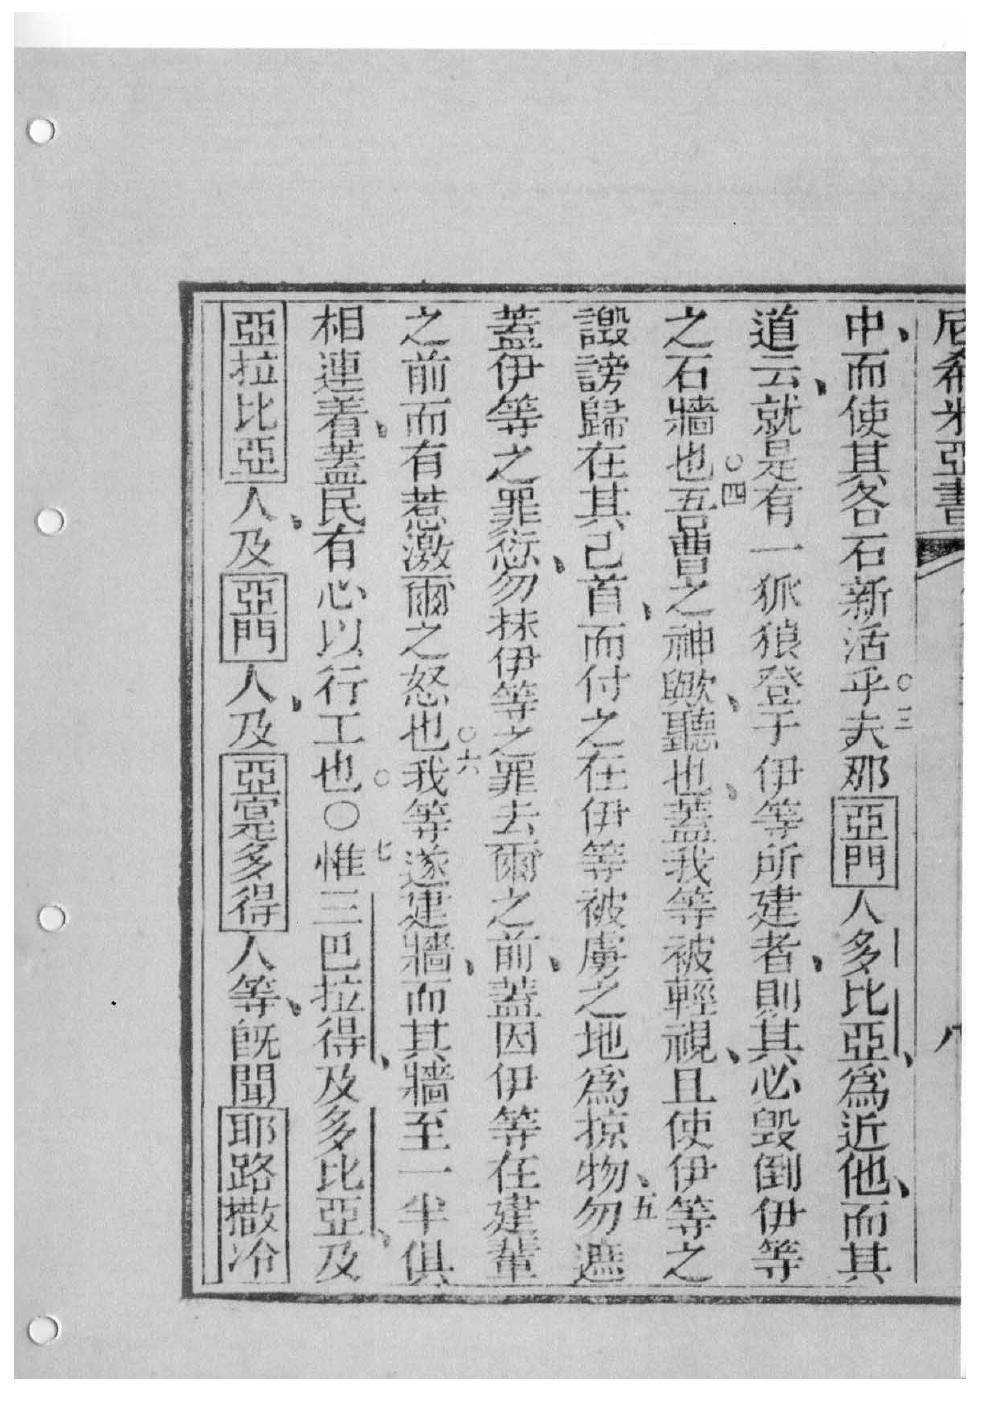 尼希米亞書 八
中而使其各石新活乎○三夫那亞門人多比亞爲近他而其
道云就是有一狐狼登于伊等所建者則其必毀倒伊等
之石牆也○四吾曹之神歟聽也蓋我等被輕視且使伊等之
譭謗歸在其己首而付之在伊等被虜之地爲掠物五勿遮
蓋伊等之罪愆勿抹伊等之罪去爾之前蓋因伊等在建輩
之前而有惹激爾之怒也○六我等遂建牆而其牆至一半俱
相連着蓋民有心以行工也○○七惟三巴拉得及多比亞及
亞拉比亞人及亞門人及亞寔多得人等旣聞耶路撒冷